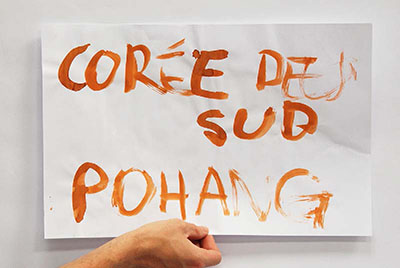 CORÉE DU
SUD
POHANG